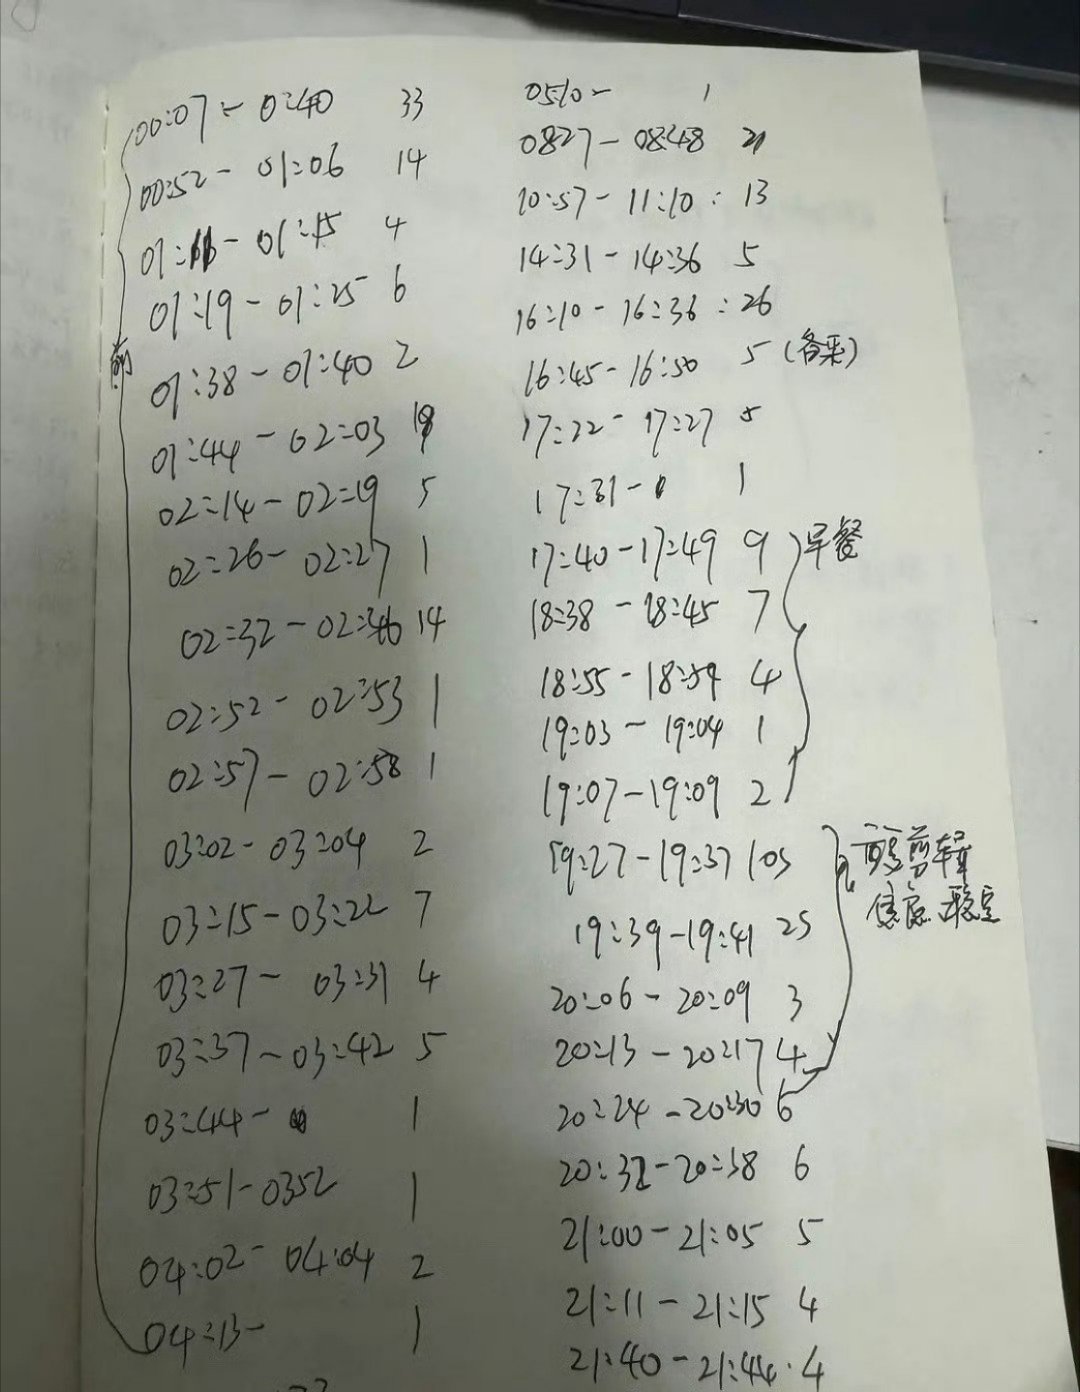 00:07 - 0:40 33
00:52 - 01:06 14
01:11 - 01:15 4
01:19 - 01:25 6
前
01:38 - 01:40 2
01:44 - 02:03 19
02:14 - 02:19 5
02:26 - 02:27 1
02:32 - 02:46 14
02:52 - 02:53 1
02:57 - 02:58 1
03:02 - 03:04 2
03:15 - 03:22 7
03:27 - 03:31 4
03:37 - 03:42 5
03:44 - 1
03:51 - 0352 1
04:02 - 04:04 2
04:13 - 1
0510 - 1
0827 - 0848 21
10:57 - 11:10 : 13
14:31 - 14:36 5
16:10 - 16:36 : 26
16:45 - 16:50 5 (备采)
17:22 - 17:27 5
17:31 - 1
17:40 - 17:49 9 早餐
18:38 - 18:45 7
18:55 - 18:59 4
19:03 - 19:04 1
19:07 - 19:09 2
19:27 - 19:37 10s
剪辑
19:39 - 19:41 2s
20:06 - 20:09 3
20:13 - 20:17 4
20:24 - 20:30 6
20:32 - 20:38 6
21:00 - 21:05 5
21:11 - 21:15 4
21:40 - 21:44 . 4